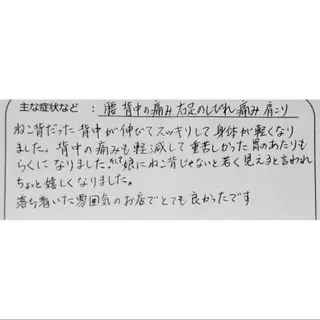 主な症状など : 腰 背中の痛み 右足のしびれ 痛み 肩こり
ねこ背だった背中が伸びてスッキリして身体が軽くなり
ました。背中の痛みも軽減して重苦しかった胃のあたりも
らくになりました。娘にねこ背じゃないと若く見えると言われ
ちょっと嬉しくなりました。
落ち着いた雰囲気のお店でとても良かったです